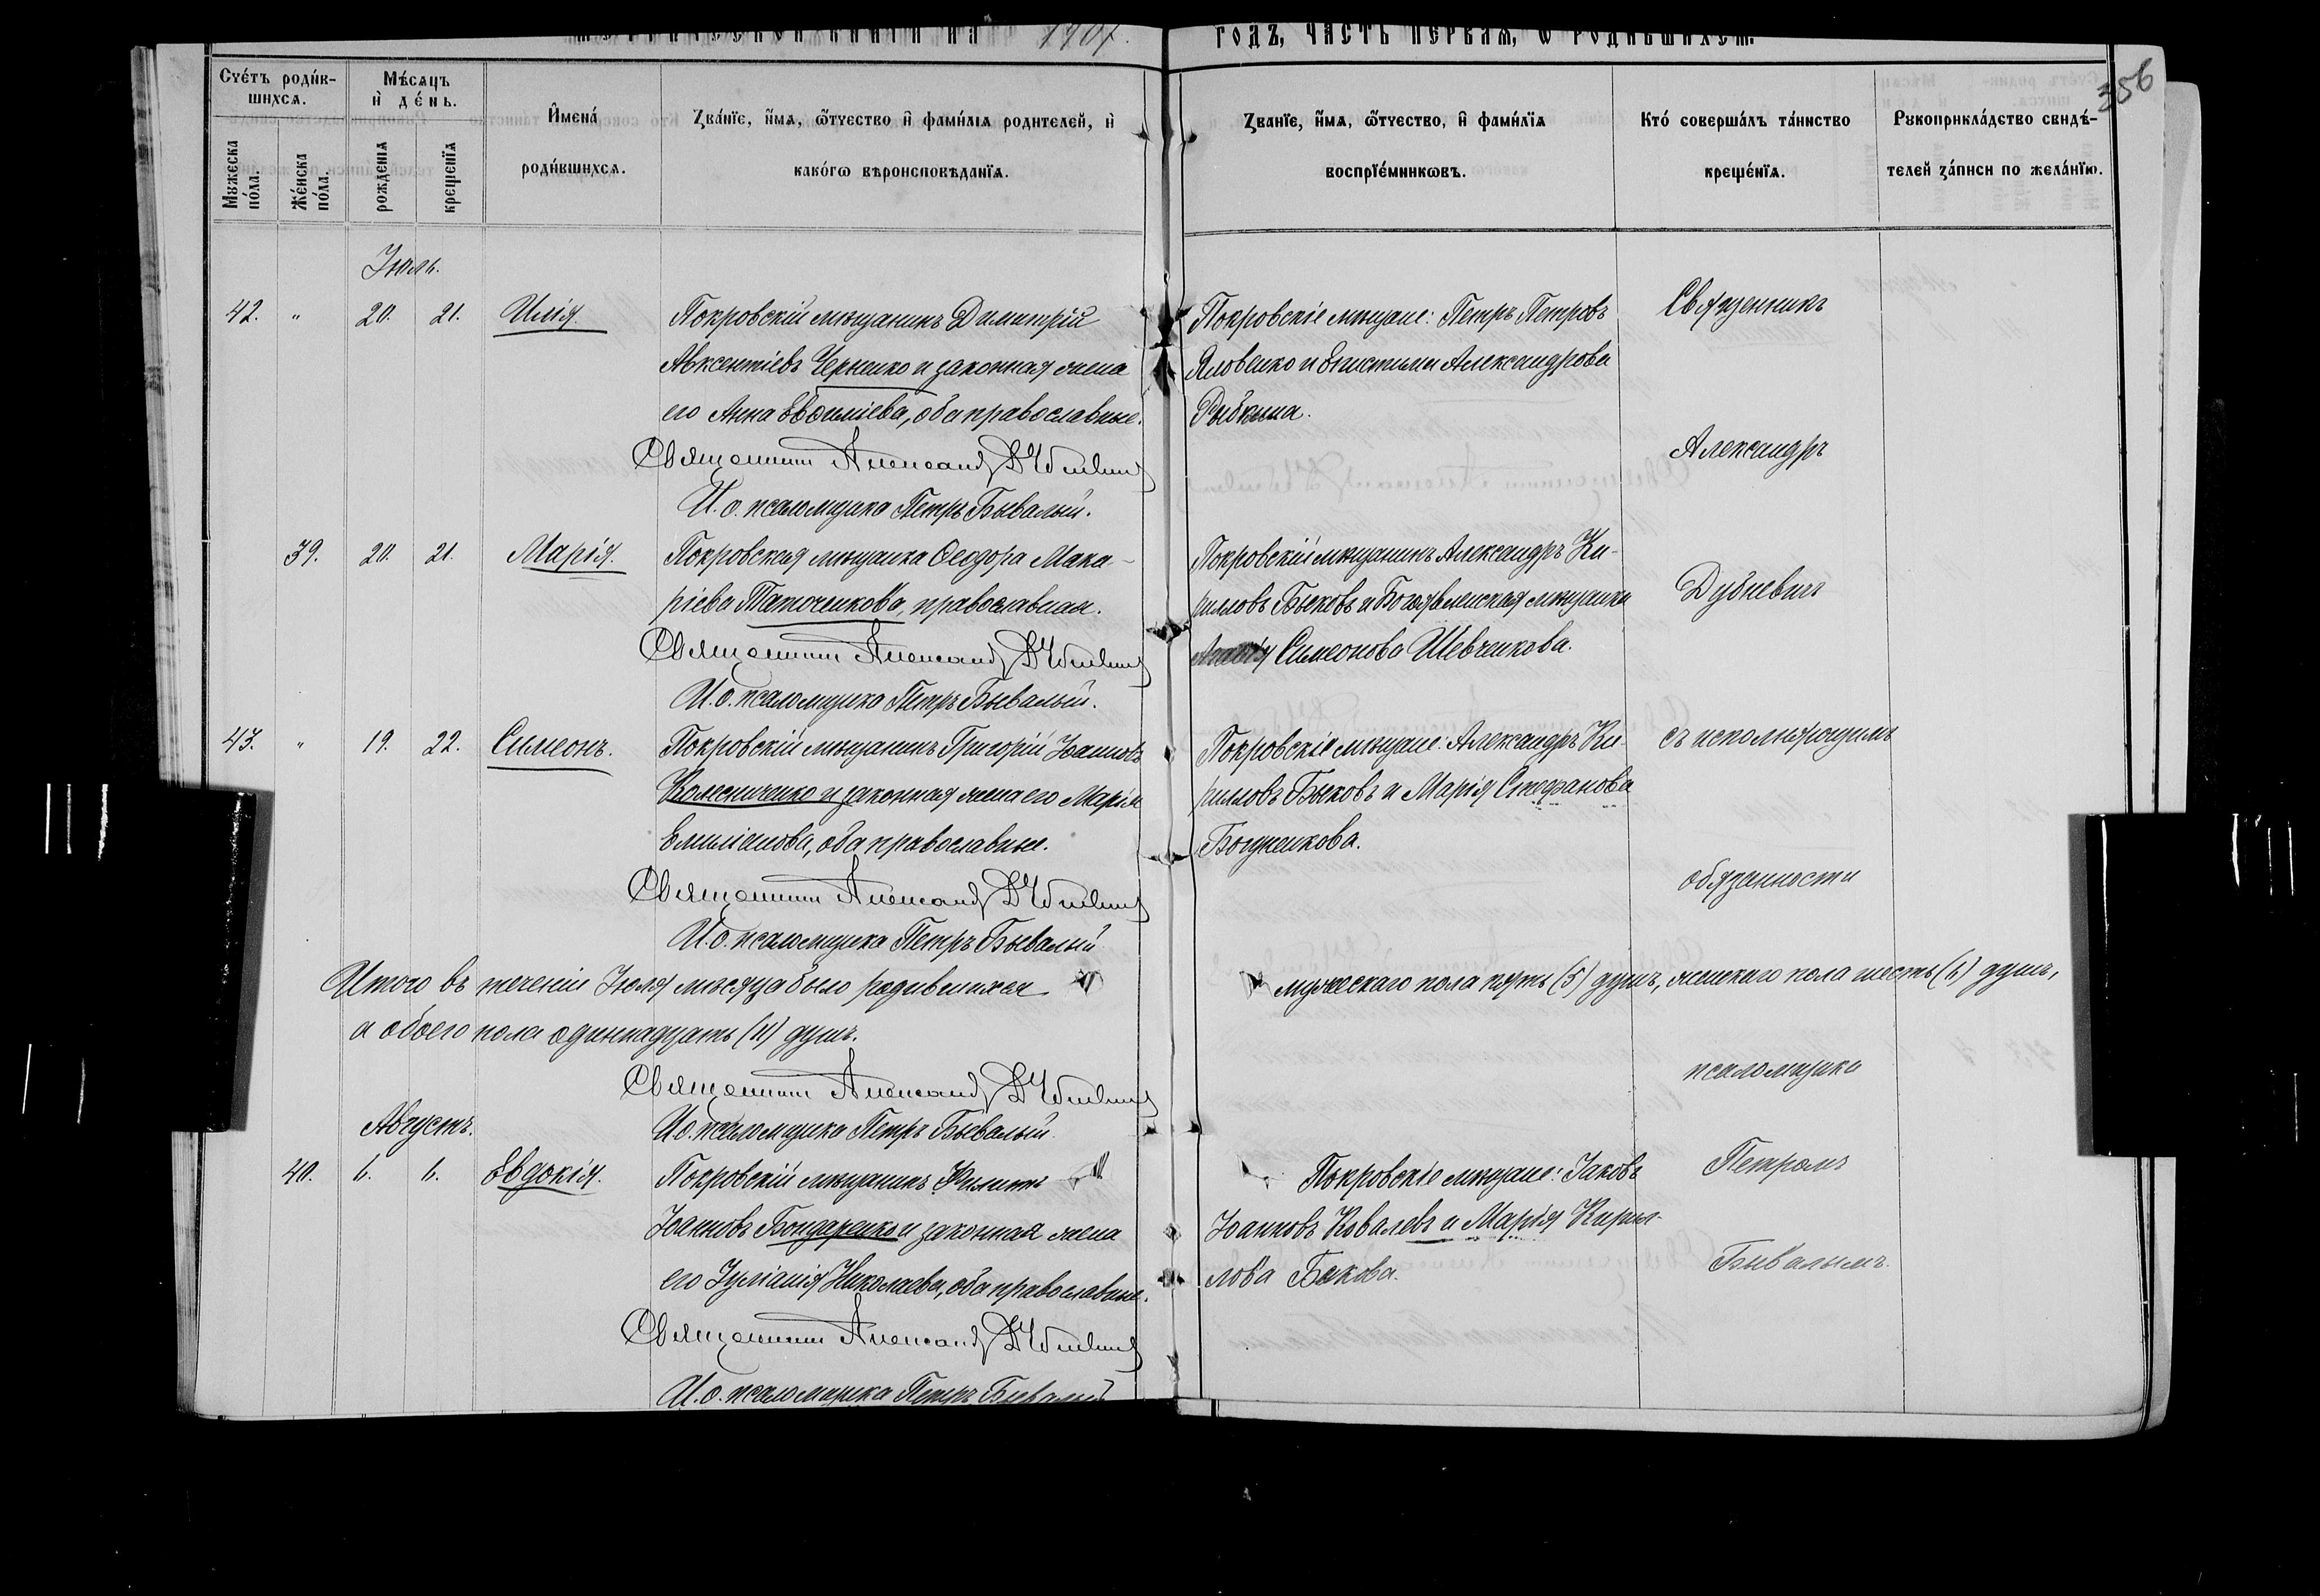 1907.
годъ, часть первая, ѡ родившихся.
356
Счётъ роди́в-
шихся.
Мѣ́сяцъ
и҆ де́нь.
Мужеска
по́ла.
Же́нска
по́ла.
рожденія
крещенїя
И҆мена́
роди́вшихся.
Зва́нїе, и҆́мя, ѻ҆́тчество и҆ фами́лія родителей, и҆
како́гѡ вѣроисповѣданїя.
Званїе, и҆́мя, ѻ҆́тчество, и҆ фами́лїя
воспрїе́мниковъ.
Кто́ соверша́лъ та́инство
креще́нїя.
Рукоприкла́дство свидѣ́-
телей за́писи по жела́нїю.
Іюль.
42. " 20. 21. Илія.
Покровскій мѣщанинъ Димитрій
Авксентіевъ Черненко и законная жена
его Анна Евсиліева, оба православные.
Священникъ Александръ Дубневичъ
И. о. псаломщика Петръ Бывалый.
Покровскіе мѣщане: Петръ Петровъ
Яловенко и Епистимія Александрова
Рыбкина.
39. 20. 21. Марія.
Покровская мѣщанка Ѳеодора Мака-
ріева Таточенкова, православная.
Священникъ Александръ Дубневичъ
И. о. псаломщика Петръ Бывалый.
Покровскій мѣщанинъ Александръ Ки-
рилловъ Быковъ и Богоявленская мѣщанка
Симеонова Шевченкова.
43. " 19. 22. Симеонъ.
Покровскій мѣщанинъ Григорій Іоанновъ
Колесниченко и законная жена его Марія
Емиліанова, оба православные.
Священникъ Александръ Дубневичъ
И. о. псаломщика Петръ Бывалый
Покровскіе мѣщане: Александръ Ки-
рилловъ Быковъ и Марія Стефанова
Священникъ
Александръ
Дубневичъ
съ исполняющимъ
обязанности
псаломщика
Петромъ
Бывалымъ.
Итого въ теченіи Іюля мѣсяца было родившихся мужескаго пола пять (5) душъ, женскаго пола шесть (6) душъ,
а обоего пола одиннадцать (11) душъ.
Священникъ Александръ Дубневичъ
И. о. псаломщика Петръ Бывалый.
Августъ.
40. 6. 6. Евдокія.
Покровскій мѣщанинъ Филиппъ
Іоанновъ Бондаренко и законная жена
его Іуліанія Николаева, оба православные.
Священникъ Александръ Дубневичъ
И. о. псаломщика Петръ Бывалый
Покровскіе мѣщане: Іаковъ
Іоанновъ Ковалевъ и Марія Кирил-
лова Быкова.